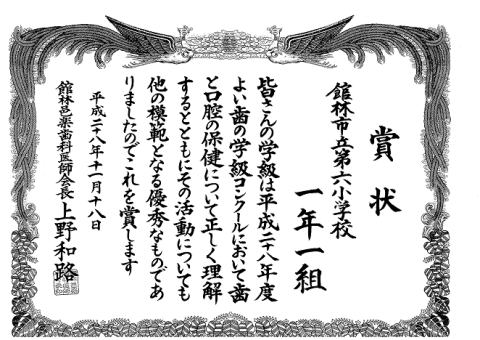 賞状
館林市立第六小学校
一年一組
皆さんの学級は平成二十八年度
よい歯の学級コンクールにおいて歯
と口腔の保健について正しく理解
するとともにその活動についても
他の模範となる優秀なものであ
りましたのでこれを賞します
平成二十八年十一月十八日
館林邑楽歯科医師会長 上野和路